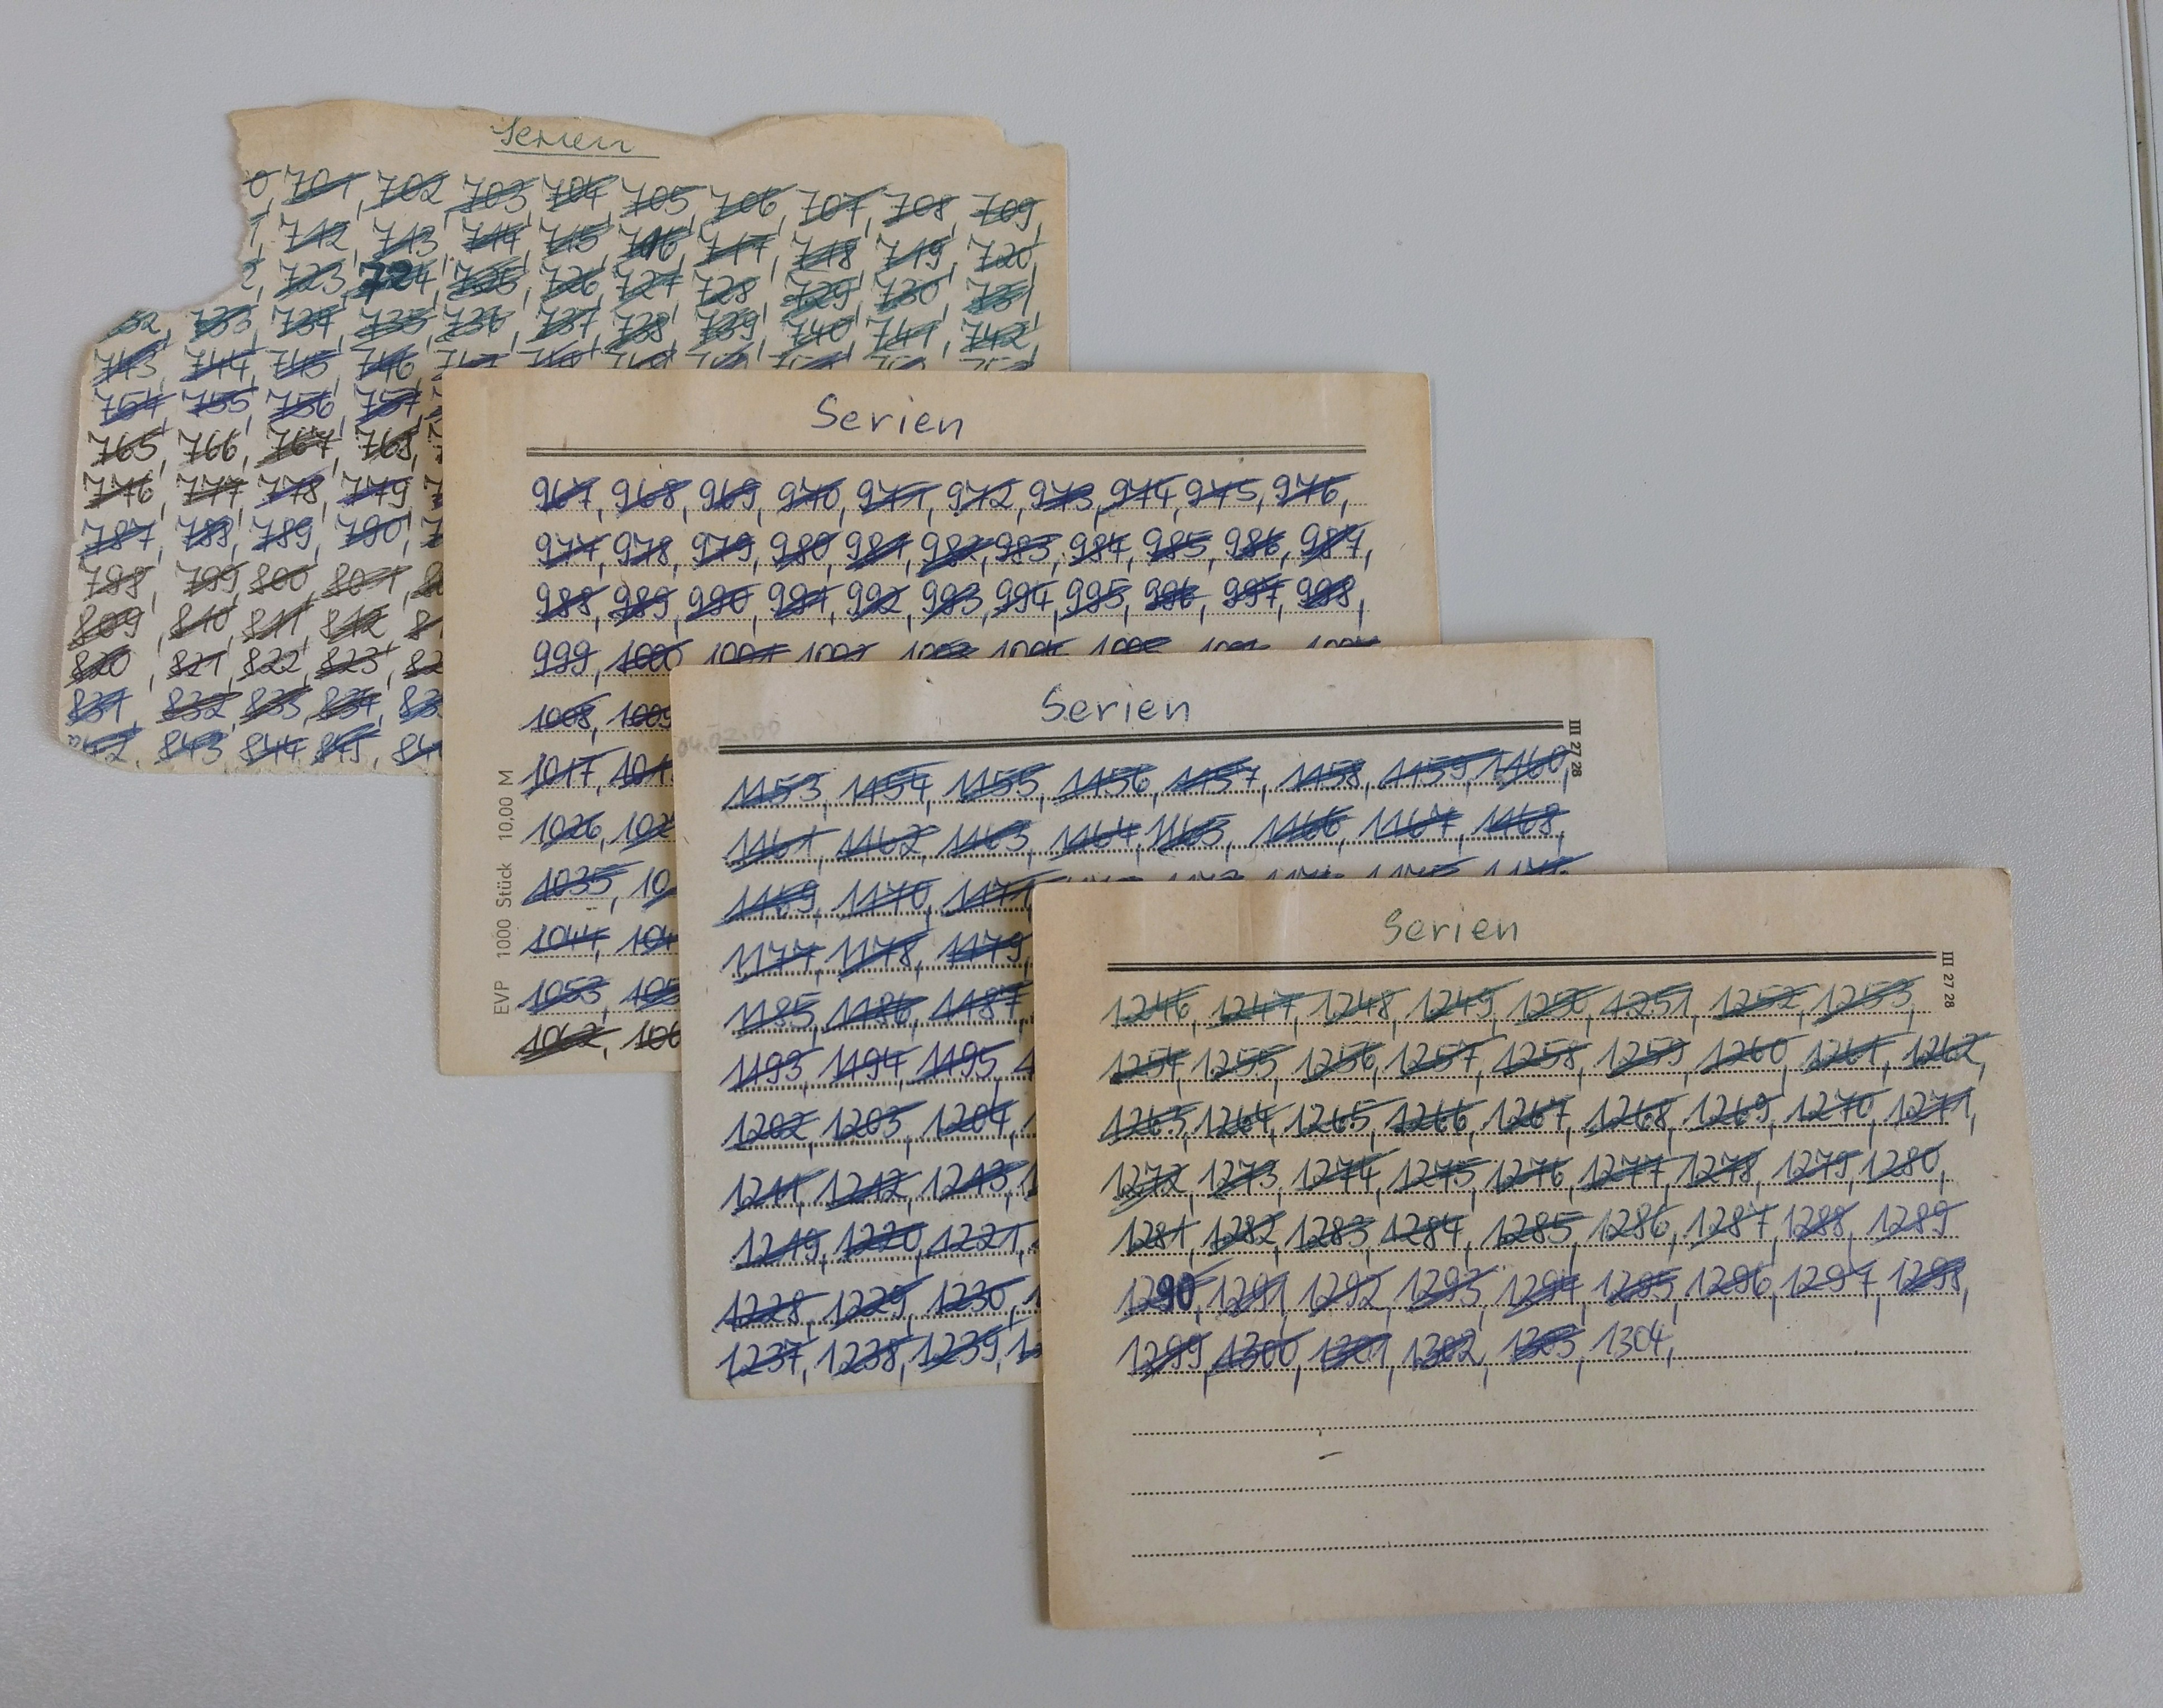 Serien
0, 701, 702, 703, 704, 705, 706, 707, 708, 709,
712, 713, 714, 715, 716, 717, 718, 719, 720,
2, 723, 724, 725, 726, 727, 728, 729, 730, 731
32, 733, 734, 735, 736, 737, 738, 739, 740, 741, 742,
743, 744, 745, 746,
754, 755, 756, 757,
765, 766, 767, 768,
776, 777, 778, 779,
787, 788, 789, 790,
798, 799, 800, 801,
809, 810, 811, 812,
820, 821, 822, 823,
831, 832, 833, 834,
842, 843, 844, 845,
Serien
967, 968, 969, 970, 971, 972, 973, 974, 975, 976,
977, 978, 979, 980, 981, 982, 983, 984, 985, 986, 987,
988, 989, 990, 991, 992, 993, 994, 995, 996, 997, 998,
999, 1000, 1001, 1002, 1003, 1004, 1005,
1008, 1009
1017,
1026,
1035,
1044,
1053,
1062,
EVP 1000 Stück 10,00 M
Serien
III 27 28
1153, 1154, 1155, 1156, 1157, 1158, 1159, 1160,
1161, 1162, 1163, 1164, 1165, 1166, 1167, 1168,
1169, 1170, 1171
1177, 1178, 1179,
1185, 1186, 1187,
1193, 1194, 1195,
1202, 1203, 1204,
1211, 1212, 1213,
1219, 1220, 1221,
1228, 1229, 1230,
1237, 1238, 1239,
Serien
III 27 28
1246, 1247, 1248, 1249, 1250, 1251, 1252, 1253,
1254, 1255, 1256, 1257, 1258, 1259, 1260, 1261, 1262,
1263, 1264, 1265, 1266, 1267, 1268, 1269, 1270, 1271,
1272, 1273, 1274, 1275, 1276, 1277, 1278, 1279, 1280,
1281, 1282, 1283, 1284, 1285, 1286, 1287, 1288, 1289
1290, 1291, 1292, 1293, 1294, 1295, 1296, 1297, 1298,
1299, 1300, 1301, 1302, 1303, 1304,